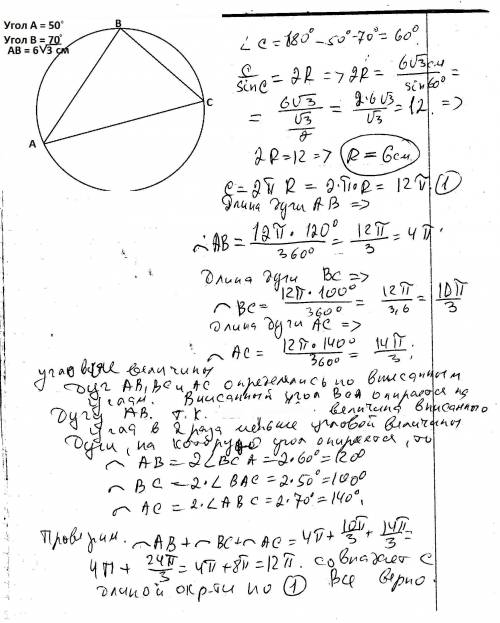 Угол А = 50°
Угол В = 70°
АВ = 6√3 см
B
C
A
∠C = 180° - 50° - 70° = 60°
C/sinC = 2R => 2R = 6√3см/sin60° =
= 6√3/(√3/2) = 2·6√3/√3 = 12 =>
2R = 12 => R = 6см
C = 2π R = 2·π·R = 12π ①
Длина дуги AB =>
◡AB = 12π·120°/360° = 12π/3 = 4π.
Длина дуги BC =>
◡BC = 12π·100°/360° = 12π/3,6 = 10π/3
Длина дуги AC =>
◡AC = 12π·140°/360° = 14π/3;
угловые величины
Дуг AB, BC и AC определялись по вписанным
углам. Вписанный угол опирается на
Дугу AB. Т.К. величина вписанного
угла в 2 раза меньше угловой величины
Дуги, на которую угол опирается, то
◡AB = 2∠BCA = 2·60° = 120°
◡BC = 2·∠BAC = 2·50° = 100°
◡AC = 2·∠ABC = 2·70° = 140°,
Проверим. ◡AB + ◡BC + ◡AC = 4π + 10π/3 + 14π/3 =
4π + 24π/3 = 4π + 8π = 12π. совпадает с
длиной окр-ти по ① Все верно.